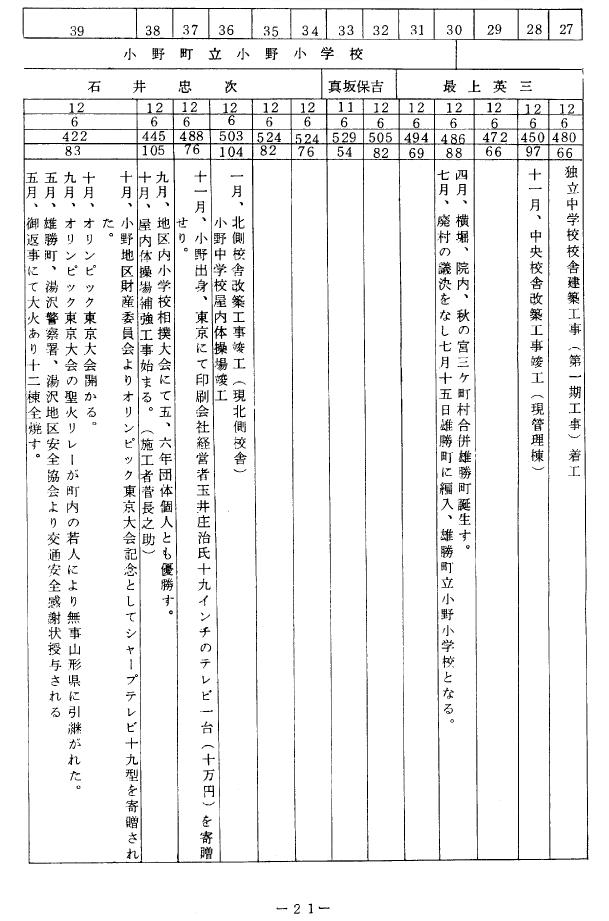 39 38 37 36 35 34 33 32 31 30 29 28 27
小野町立小野小学校
石井忠次 真坂保吉 最上英三
12 12 12 12 12 12 11 12 12 12 12 12 12
6 6 6 6 6 6 6 6 6 6 6 6 6
422 445 488 503 524 524 529 505 494 486 472 450 480
83 105 76 104 82 76 54 82 69 88 66 97 66
独立中学校校舎建築工事(第一期工事)着工
十一月、中央校舎改築工事竣工(現管理棟)
四月、横堀、院内、秋の宮三ケ町村合併雄勝町誕生す。
七月、廃村の議決をなし七月十五日雄勝町に編入、雄勝町立小野小学校となる。
一月、北側校舎改築工事竣工(現北側校舎)
小野中学校屋内体操場竣工
十一月、小野出身、東京にて印刷会社経営者玉井庄治氏十九インチのテレビ一台(十万円)を寄贈
せり。
九月、地区内小学校相撲大会にて五、六年団体個人とも優勝す。
十月、屋内体操場補強工事始まる。(施工者菅長之助)
十月、小野地区財産委員会よりオリンピック東京大会記念としてシャープテレビ十九型を寄贈され
た。
十月、オリンピック東京大会開かる。
九月、オリンピック東京大会の聖火リレーが町内の若人により無事山形県に引継がれた。
五月、雄勝町、湯沢警察署、湯沢地区安全協会より交通安全感謝状授与される
五月、御返事にて大火あり十二棟全焼す。
—21—